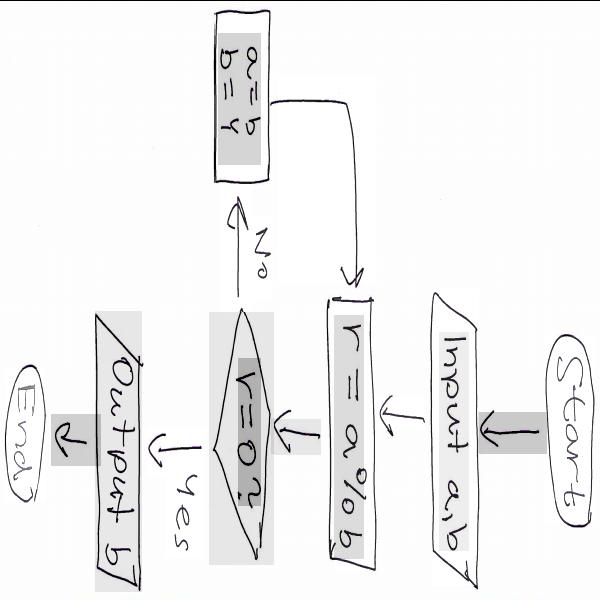 Start
Input a,b
r = a % b
r = 0?
No
a = b
b = r
Yes
Output b
End